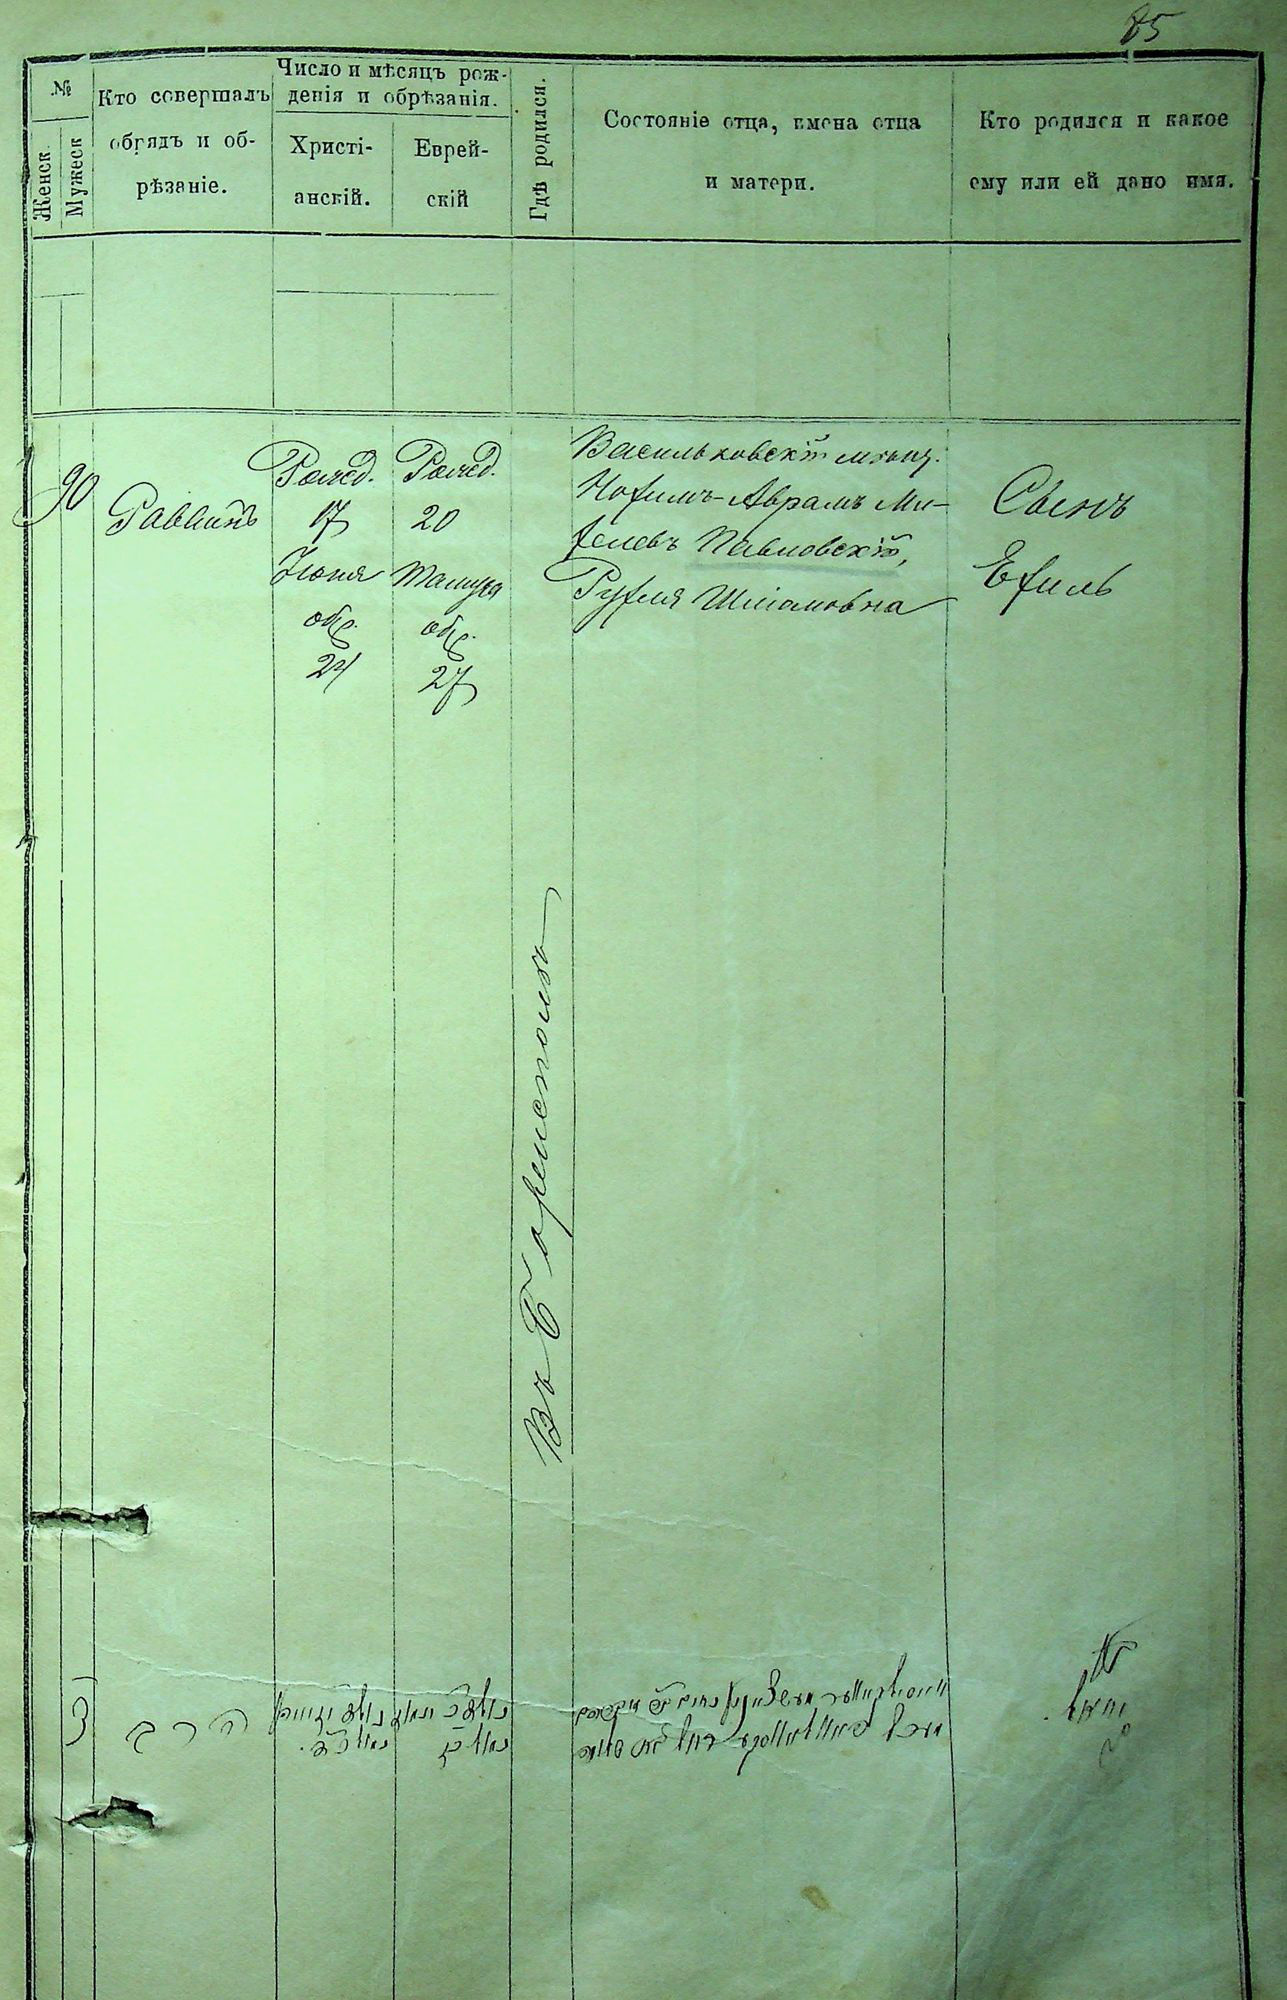 85
№
Женск.
Мужеск
Кто совершалъ
обрядъ и об-
рѣзаніе.
Число и мѣсяцъ рож-
денія и обрѣзанія.
Христі-
анскій.
Еврей-
скій
Гдѣ родился.
Состояніе отца, имена отца
и матери.
Кто родился и какое
ему или ей дано имя.
90
Раввинъ
Рожд.
17
Іюня
обр.
24
Рожд.
20
Тамуза
обр.
27
Въ Борисполѣ
Васильковскій мѣщ.
Нохимъ-Аврамъ Ми-
хелевъ Павловскій,
Рухля Шліомовна
Сынъ
Ехиль
צ
הרב
יחיאל